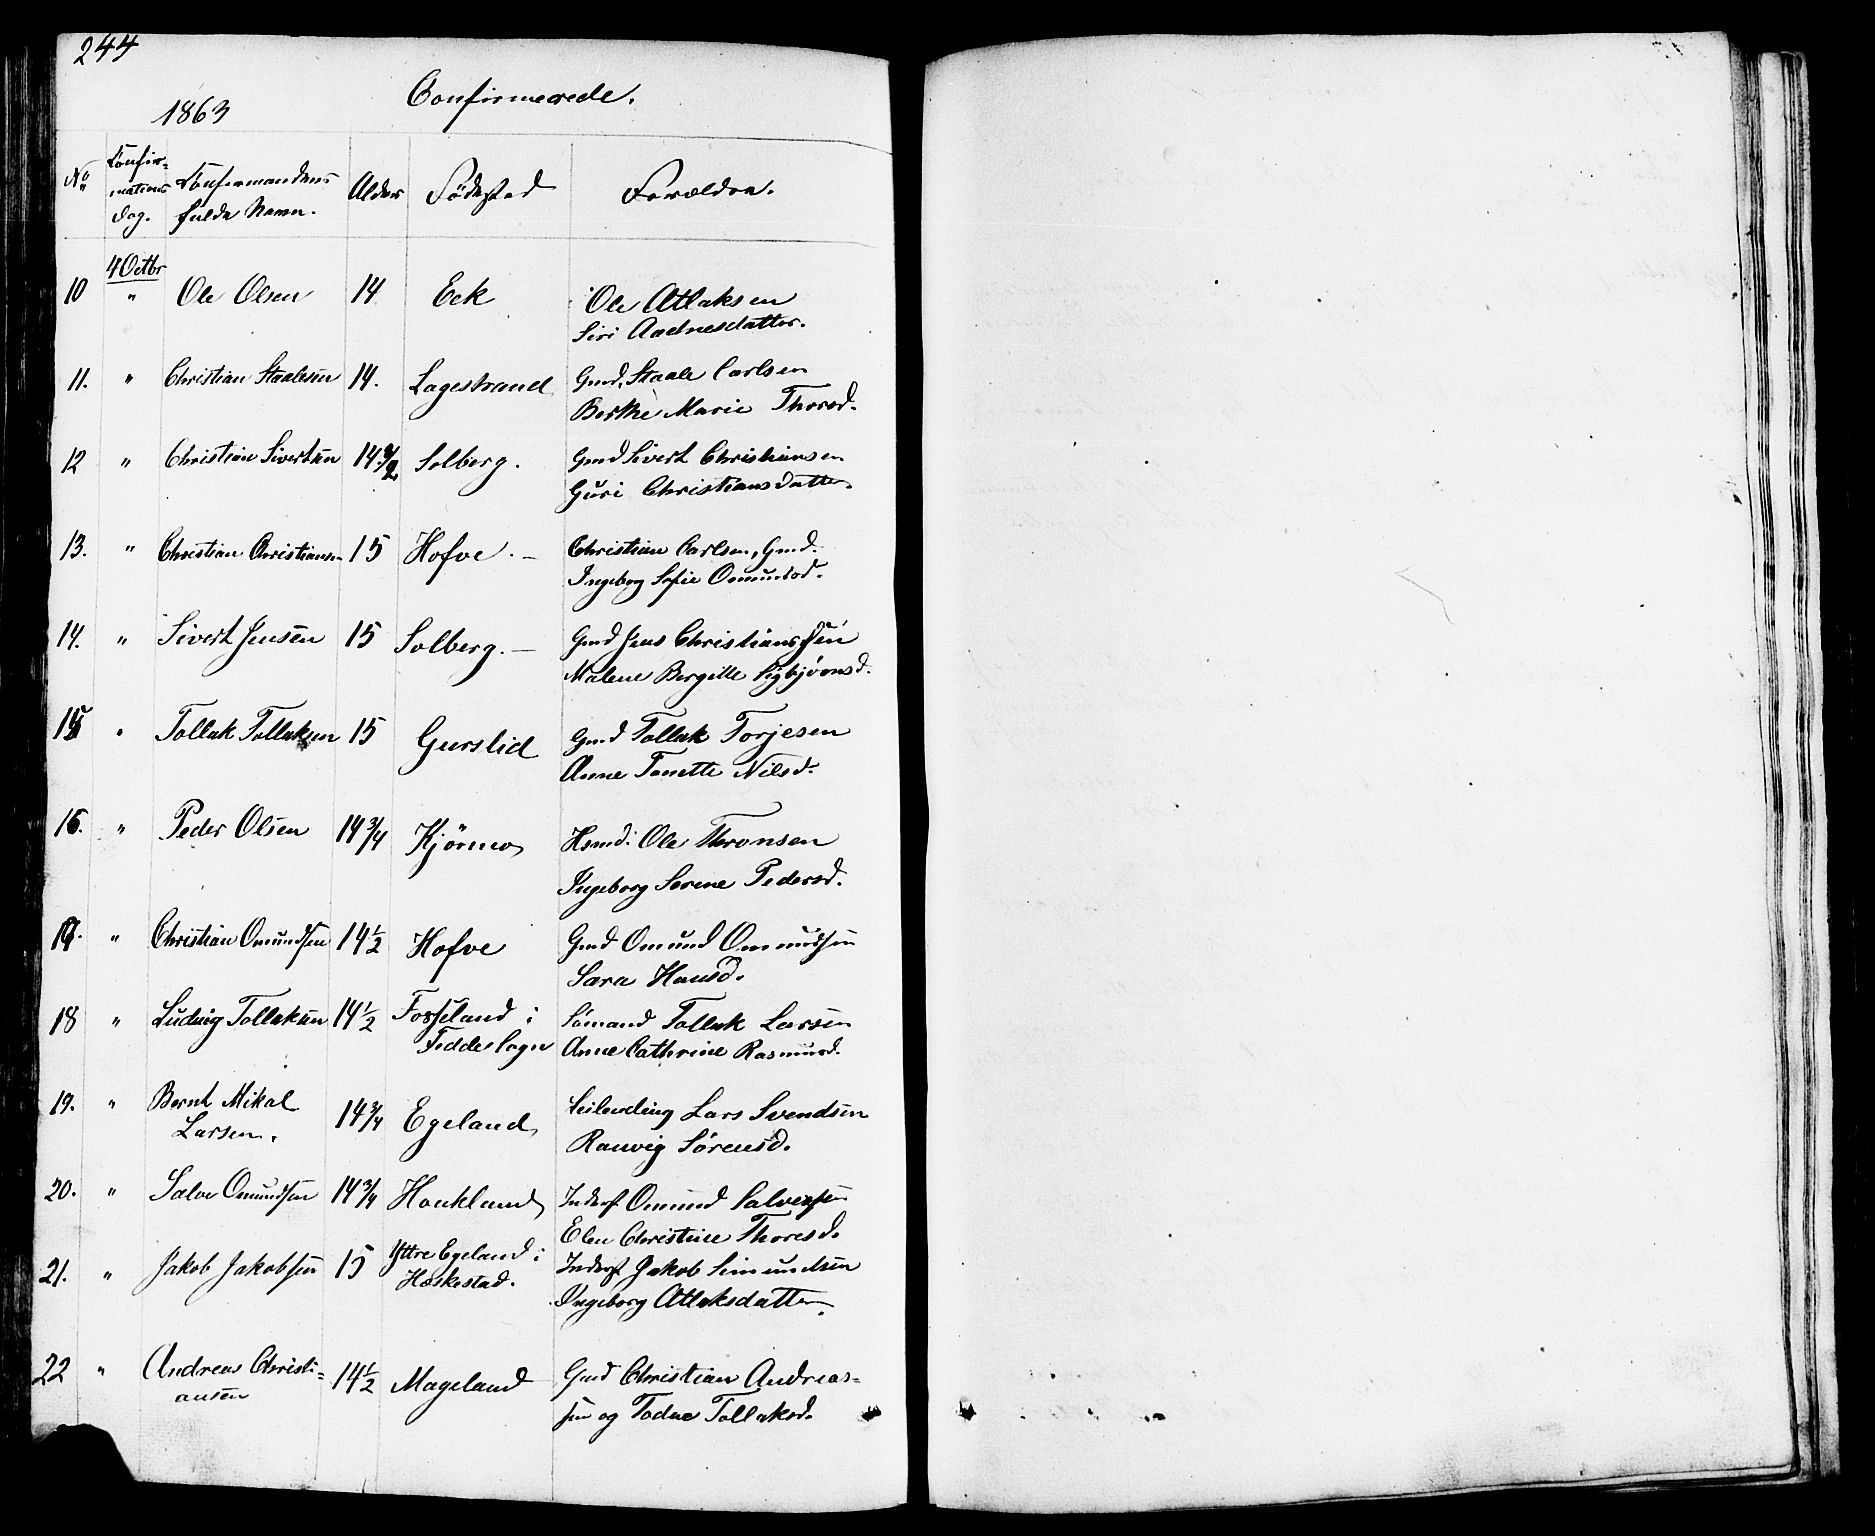 244
1863 Confirmerede.
No Confirmations Dag. Confirmandens fulde Navn. Alder Födested Forældre.
4 Octbr
10 " Ole Olsen 14 Eek Ole Atlaksen
Siri Aadnesdatter.
11. " Christian Staalesen 14. Lagestrand Gmd. Staale Carlsen
Berthe Marie Thorsd.
12 " Christian Sivertsen 14 Solberg. Gmd Sivert Christiansen
Guri Christiansdatter.
13. " Christian Christiansen 15 Hofve. — Christian Carlsen, Gmd.
Ingeborg Sofie Omundsd.
14. " Sivert Jensen 15 Solberg. — Gmd Jens Christianssen
Malene Bergitte Sigbjörnsd.
15 " Tollak Tollaksen 15 Gurslid Gmd Tollak Torjesen
Anne Tonette Nilsd.
16. " Peder Olsen 14 3/4 Kjörmo Hsmd. Ole Thronsen
Ingeborg Serene Pedersd.
17. " Christian Omundsen 14 1/2 Hofve Gmd Omund Omundsen
Sara Hansd.
18 " Ludvig Tollaksen 14 1/2 Fosseland i Sömand Tollak Larsen
Fedde Sogn Anne Cathrine Rasmusd.
19. " Bernt Mikal 14 3/4 Egeland Leilending Lars Svendsen
Larsen. Ranvig Sörensd.
20. " Salve Omundsen 14 3/4 Haukland Inderst Omund Salvesen
Elen Christine Thoresd.
21. " Jakob Jakobsen 15 Yttre Egeland i Inderst Jakob Simundsen
Heskestad. Ingeborg Atlaksdatter.
22 " Andreas Christi= 14 1/2 Mageland Gmd Christian Andreas=
ansen sen og Todne Tollaksd.